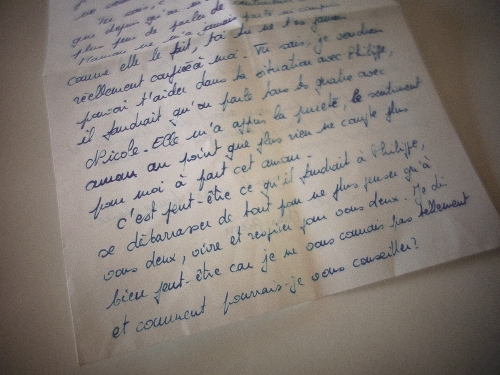 Tu sais,
que depuis qu'on
plus peur de parler de
Maman ne m'a jamais parlé si
comme elle le fait, toi tu ne t'es jamais
réellement confiée à moi. Tu sais, je voudrais
pouvoir t'aider dans ta situation avec Philippe,
il faudrait qu'on parle tous les quatre avec
Nicole. Elle m'a appris la pureté, le sentiment
amour au point que plus rien ne compte plus
pour moi à part cet amour.
C'est peut-être ce qu'il faudrait à Philippe,
se débarrasser de tout pour ne plus penser qu'à
vous deux, vivre et respirer pour vous deux. Je dis
bien peut-être car je ne vous connais pas tellement
et comment pourrais-je vous conseiller?